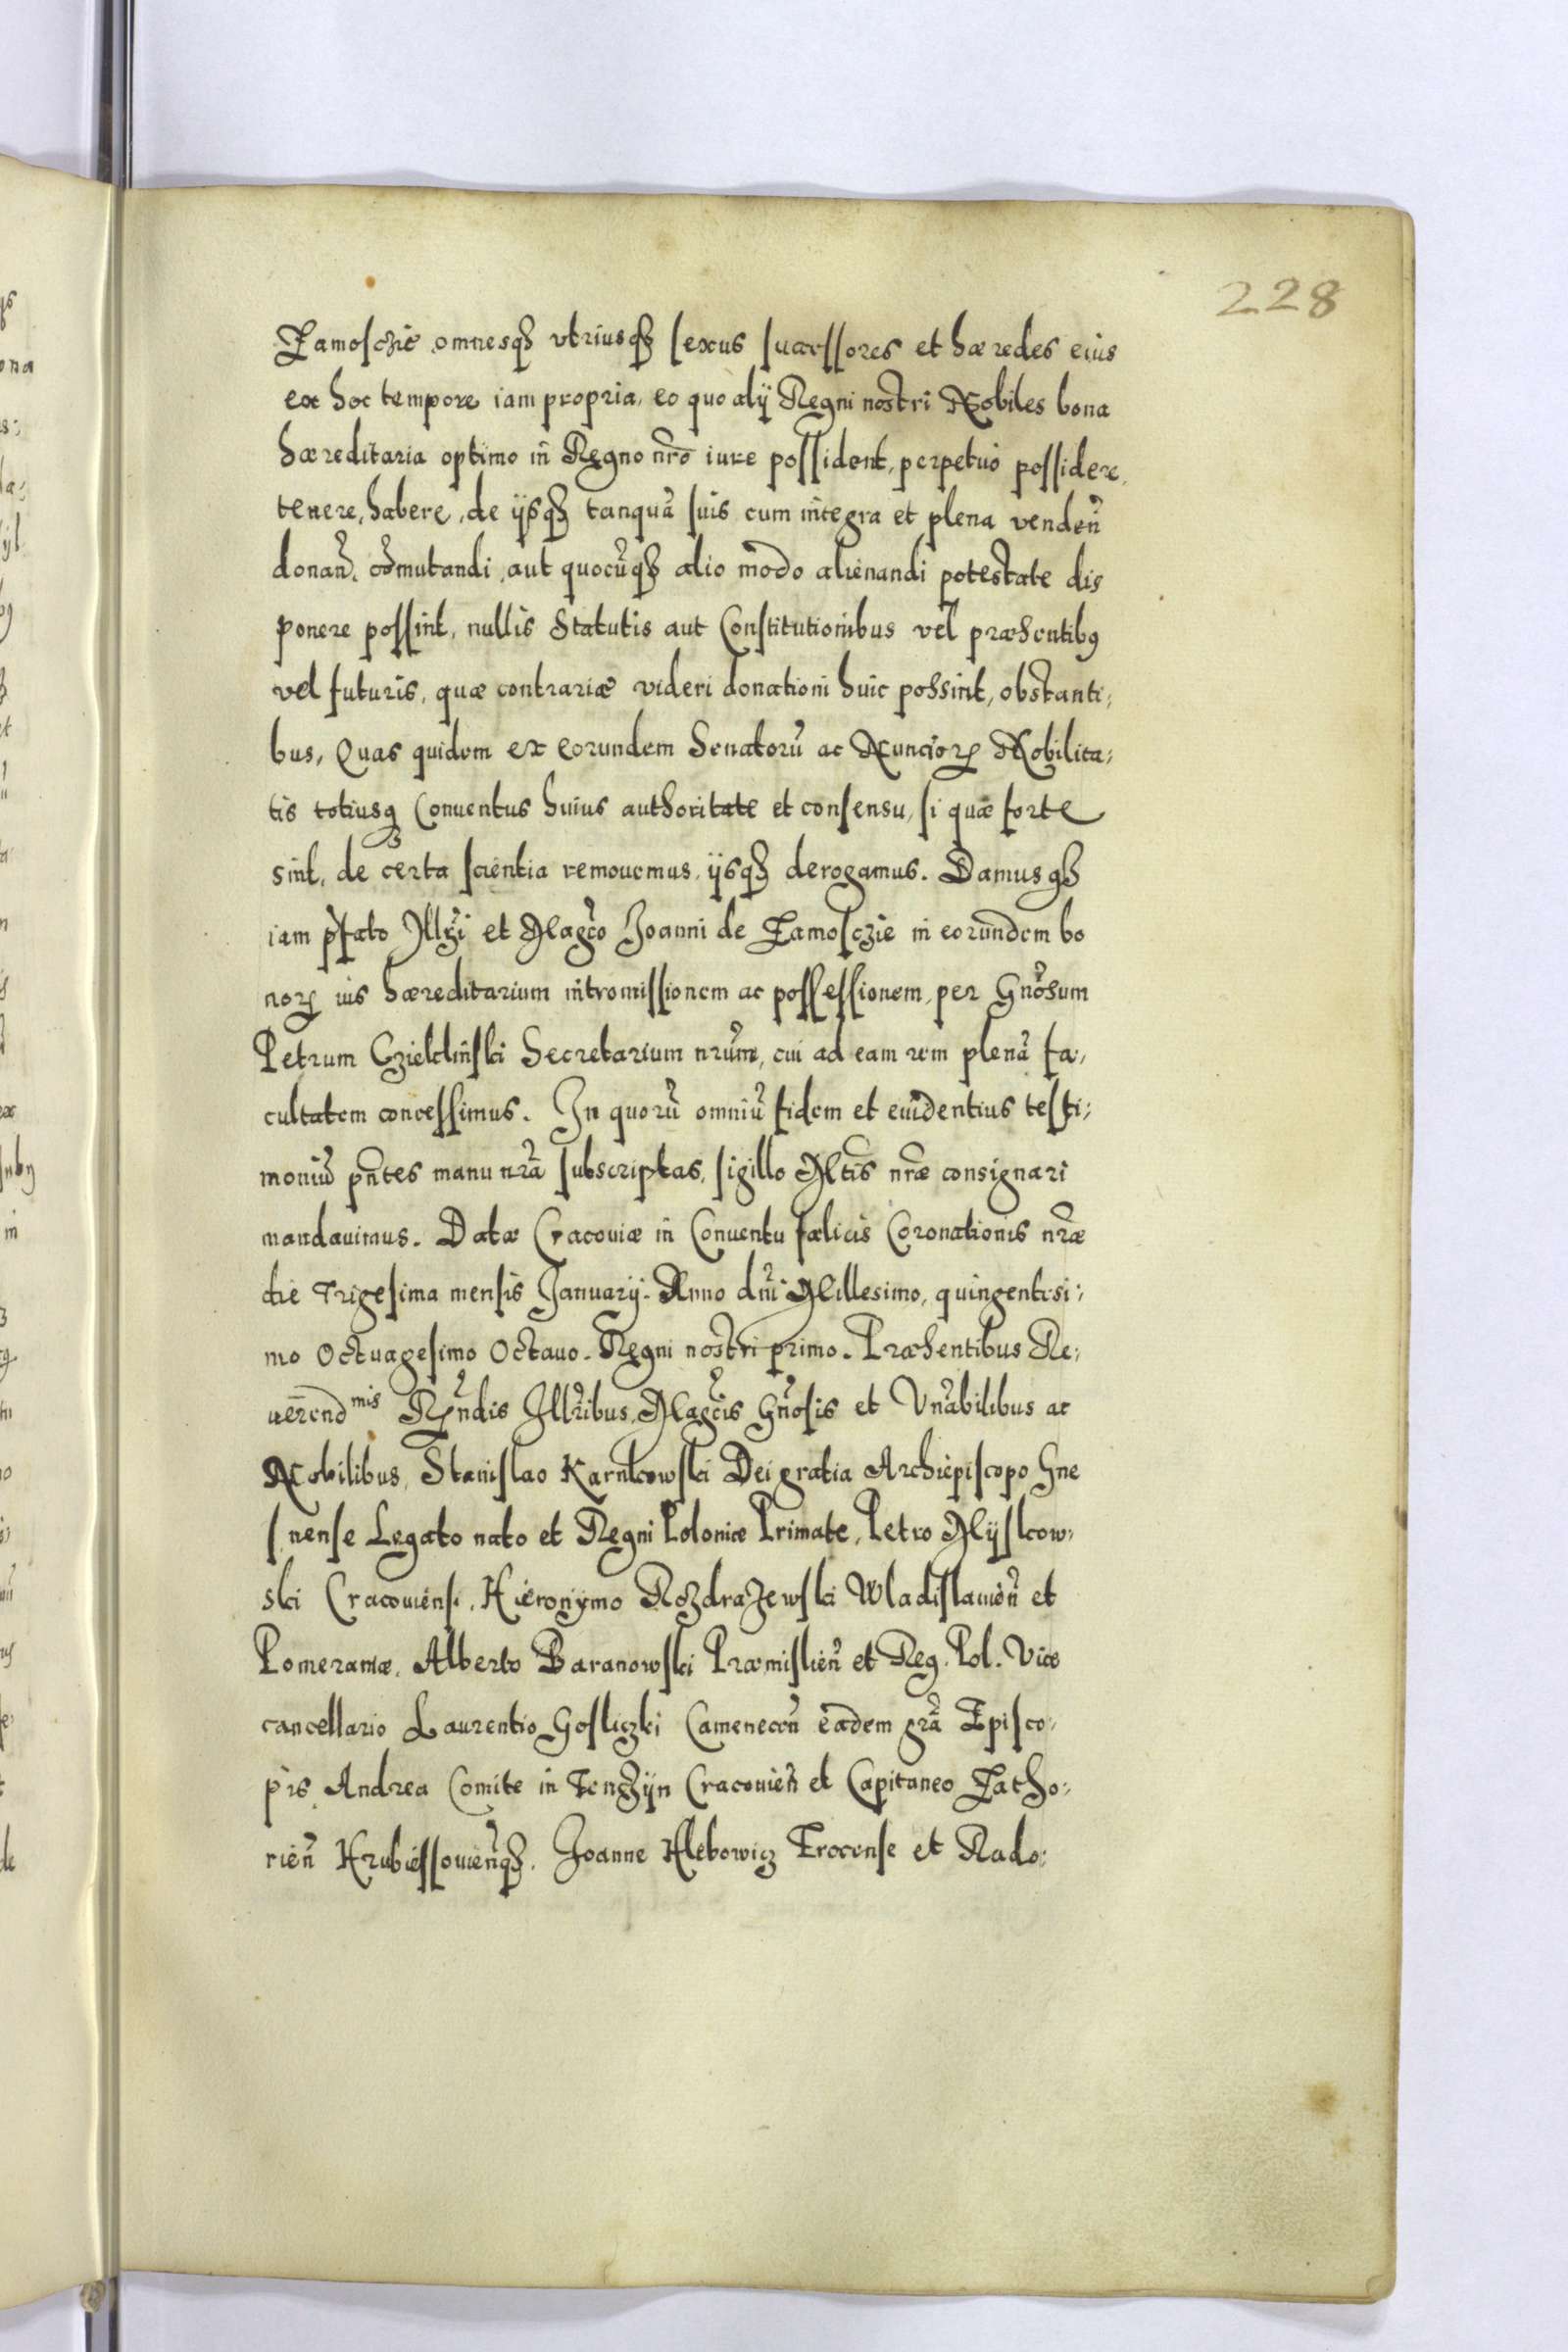 228
Zamosczie omnesqȝ vtriusqȝ sexus successores et hæredes eius
ex hoc tempore iam propria, eo quo alij Regni nostri Nobiles bona
hæreditaria optimo in Regno nr̃o iure possident, perpetuo possidere,
tenere, habere, de ijsqȝ tanquã suis cum integra et plena venden̄
donan̄, cõmutandi, aut quocũqȝ alio modo alienandi potestate dis
ponere possint, nullis Statutis aut Constitutionibus vel præsentibꝰ
vel futuris, quæ contrariæ videri donationi huic possint, obstanti;
bus, Quas quidem ex eorundem Senatorũ ac Nuncioꝝ Nobilita;
tis totiusqȝ Conuentus huius authoritate et consensu, si quæ forte
sint, de certa scientia remouemus, ijsqȝ derogamus. Damusqȝ
iam p̃fato Illr̃i et Magc̃o Joanni de Zamosczie in eorundem bo
noꝝ ius hæreditarium intromissionem ac possessionem, per Gnõsum
Petrum Czieklinski Secretarium nrũm, cui ad eam rem plenã fa,
cultatem concessimus. In quorũ omniũ fidem et euidentius testi;
moniũ pn̄tes manu nrã subscriptas, sigillo Mtis̃ nr̃æ consignari
mandauimus. Datæ Cracouiæ in Conuentu fælicis Coronationis nr̃æ
die Trigesima mensis Januarij. Anno dnĩ Millesimo, quingentesi;
mo Octuagesimo Octauo. Regni nostri primo. Præsentibus Re;
uerendmis Rn̄dis Illr̃ibus, Magc̃is Gnõsis et Vnẽrabilibus ac
Nobilibus, Stanislao Karnkowski Dei gratia Archiepiscopo Gne
snense Legato nato et Regni Poloniæ Primate, Petro Mijskow,
ski Cracouiensi, Hieronymo Rozdrazewski Wladislauien̄ et
Pomeraniæ, Alberto Baranowski Præmislien̄ et Reg. Pol. Vice
cancellario Laurentio Gosliczki Camenecen̄ eadem grã Episco,
pis, Andrea Comite in Tenczijn Cracouien̄ et Capitaneo Zatho;
rien̄ Hrubiessouien̄qȝ. Joanne Hlebowicz Trocense et Rado;